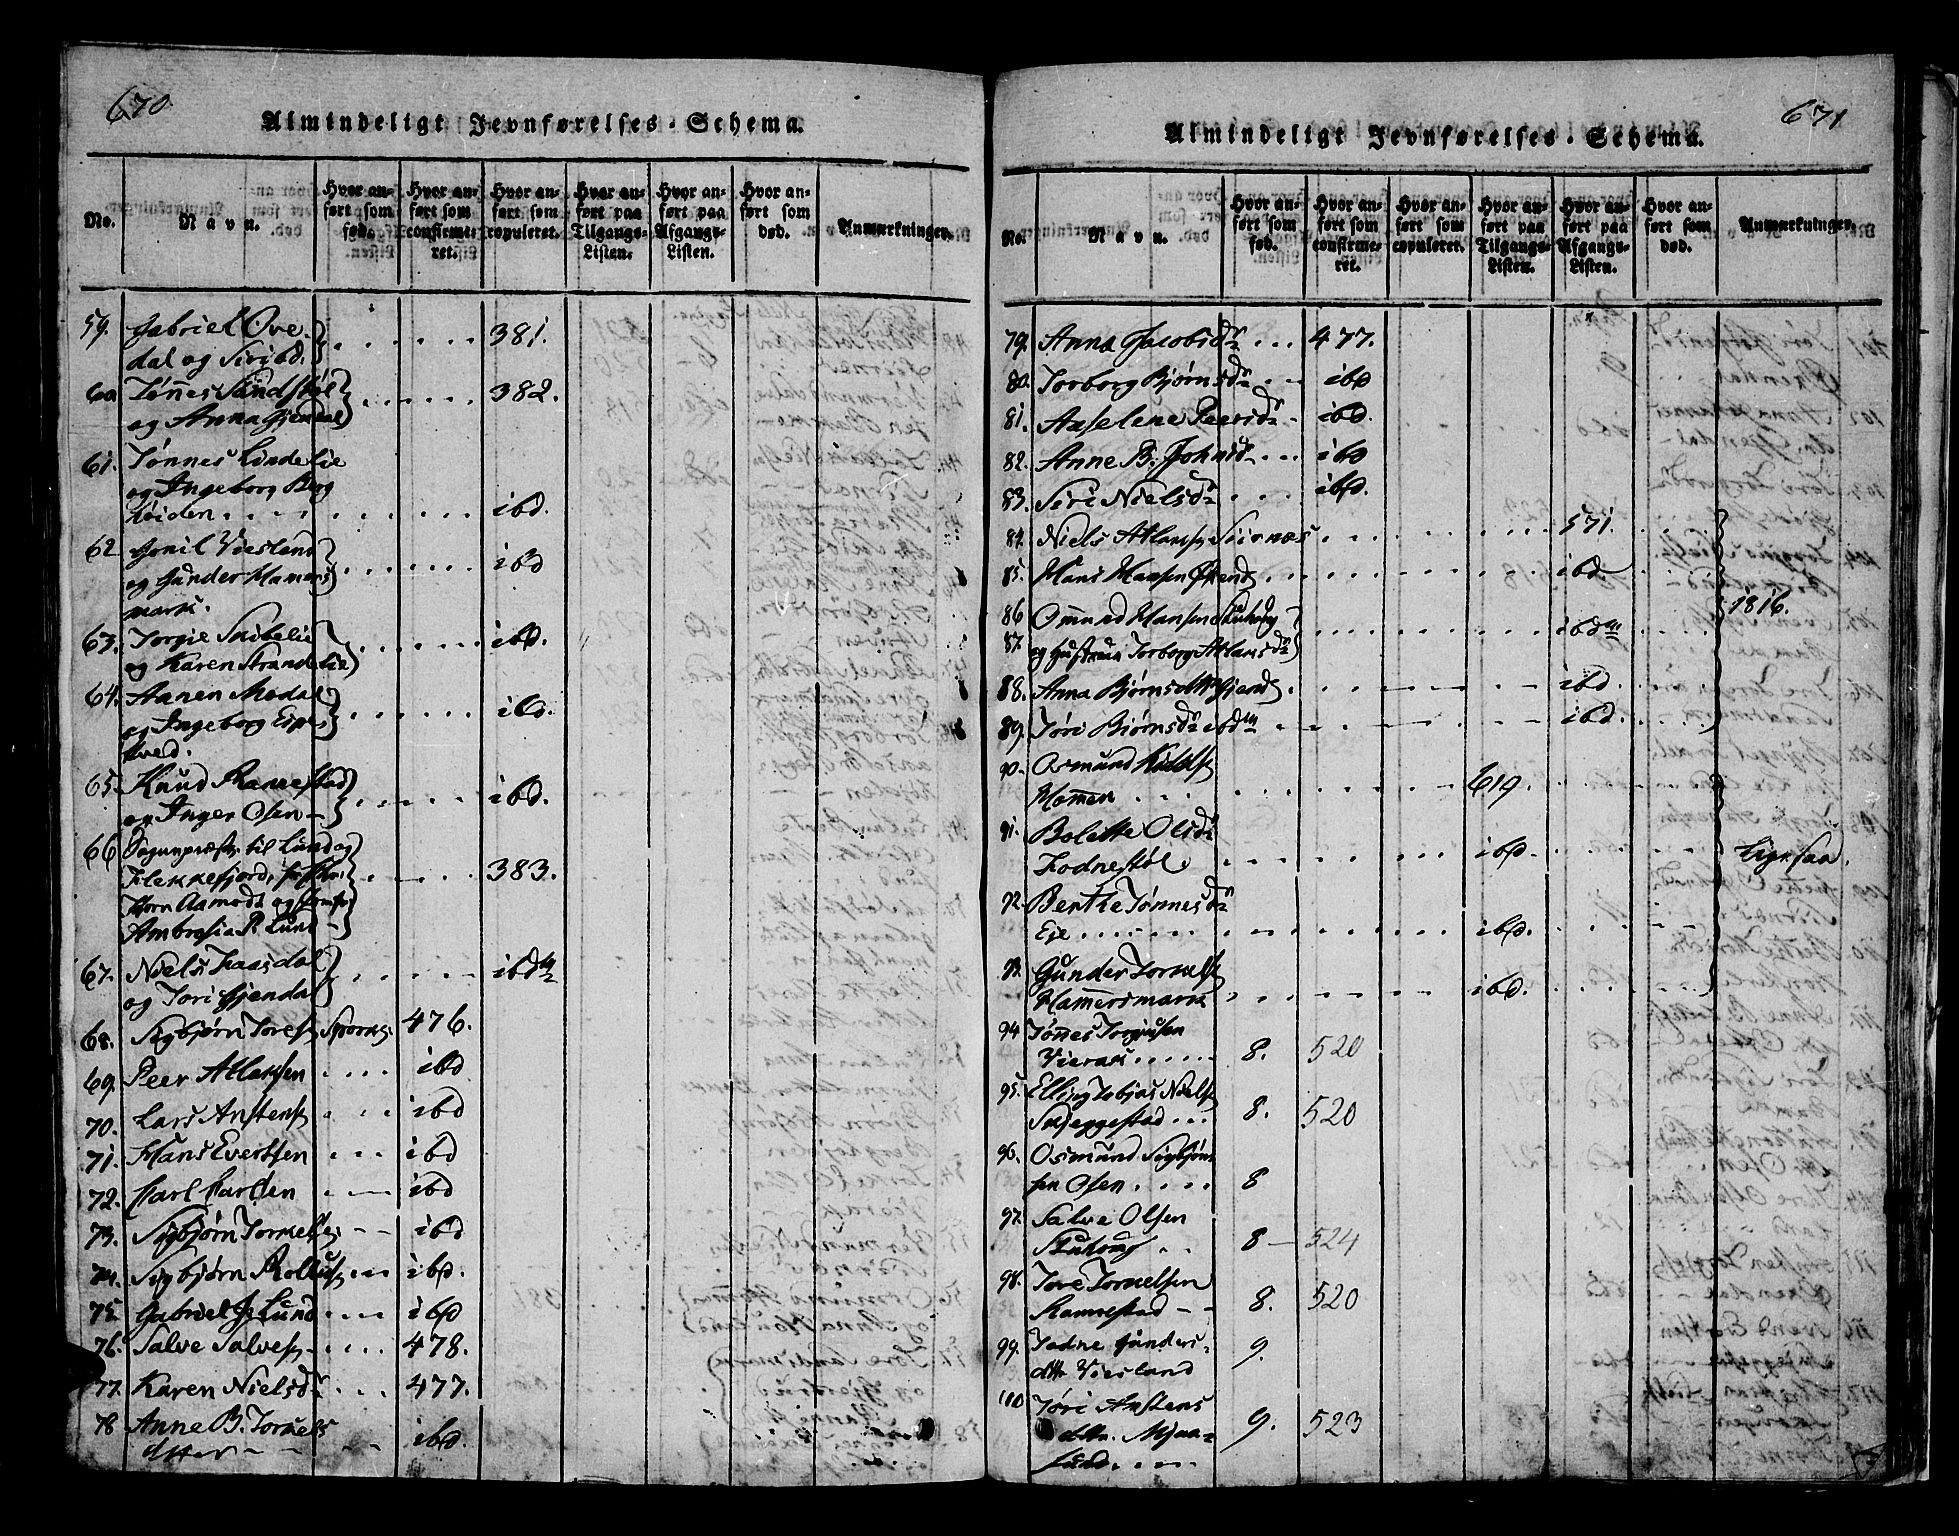 670
Almindeligt Jevnførelses-Schema.
No.
Navn.
Hvor anført som fød.
Hvor anført som confirmeret.
Hvor anført som copuleret.
Hvor anført paa Tilgangs-Listen.
Hvor anført paa Afgangs-Listen.
Hvor anført som død.
Anmærkninger.
59. Gabriel Ove
dal og Siri ibd. 381.
60 Tønnes Sandstøl
og Anna Gjendal 382.
61. Tønnes Lindelie
og Ingeborg Berg
høiden ibd.
62 Gonil Viesland
og Gunder Hamers
mark. ibd
63. Torgie
og Karen Strandelie ibd.
64. Aanen Modal
og Ingeborg Eges
kved. ibd.
65. Knud Ramestad
og Inger Osen ibd.
66 Sognepræst til Lund og
Flekkefjord,
Horn Aamodt og
Ambrosia R. Lund 383.
67. Niels
og Tori Gjendal ibdm
68. Sigbjørn Toresen 476.
69. Peer Atlaksen ibd
70. Lars Anstens. ibd
71. Hans Evertsen ibd
72. Karl Karlsen ibd
73. Sigbjørn Torkels. ibd
74. Sigbjørn Rollufs. ibd.
75. Gabriel J. Lund ibd
76. Salve Salves. 478.
77. Karen Nielsdr 477.
78 Anne B. Torkels
dtter ibd.
671
Almindeligt Jevnførelses-Schema.
No.
Navn.
Hvor anført som fød.
Hvor anført som confirmeret.
Hvor anført som copuleret.
Hvor anført paa Tilgangs-Listen.
Hvor anført paa Afgangs-Listen.
Hvor anført som død.
Anmærkninger.
79. Anna Jacobsdr 477.
80. Torborg Bjørnsdr ibd
81. Aaselene Peersdr ibd.
82. Anne B. Johnsd ibd
83. Siri Nielsdr ibd.
84. Niels Atlaks. Seirnæs 571.
85. Hans Hansen ibd
86 Omund Hansen
87. og Hustrue Torborg Atlaksdr ibdm 1816.
88. Anna Bjørnsdtr Gjend. ibd.
89. Tøri Bjørnsdr ibdm ibd.
90. Osmund
Momen 619.
91. Bolette Olsdr
Lodnestøl ibd. ligesaa.
92. Berthe Tønnesdr
Eje ibd.
93. Gunder Torkels.
Hamersmark ibd.
94 Tønnes Torgiusen
8. 520
95. Elling Tobias Niels.
Skjeggestad 8. 520
96. Osmund Sigbjørn
sen Osen 8
97. Salve Olsen
8 524
98. Tore Torkelsen
Ramestad 8. 520
99. Todne Gunders
dtr Viesland 9.
100 Tøri Anstens
dtr. Mjaa
sund 9. 523